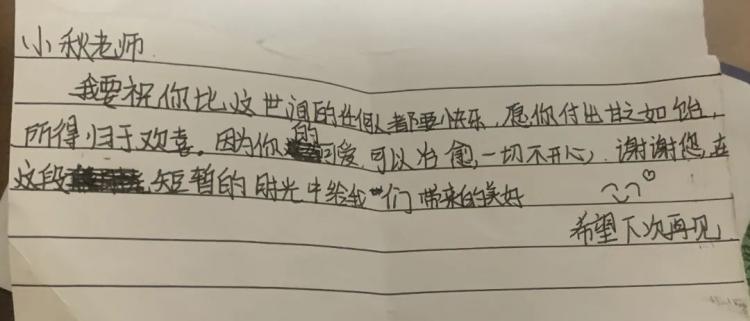 小秋老师
我要祝你比这世间的任何人都要快乐,愿你付出甘之如饴,
所得归于欢喜。因为你的可爱,可以治愈,一切不开心,谢谢您,在
这段短暂的时光中给我们带来的美好
希望下次再见